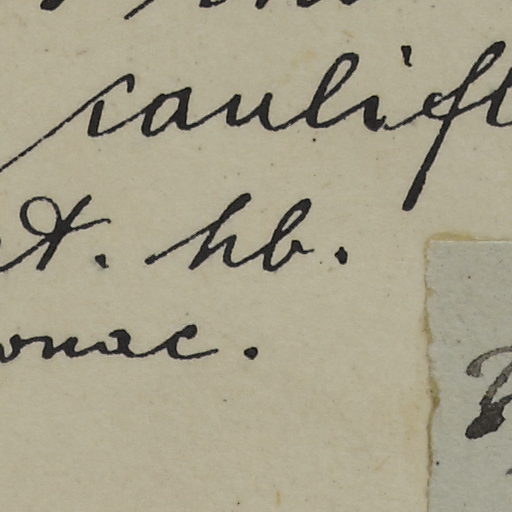 caulifl
t. hb.
onac.